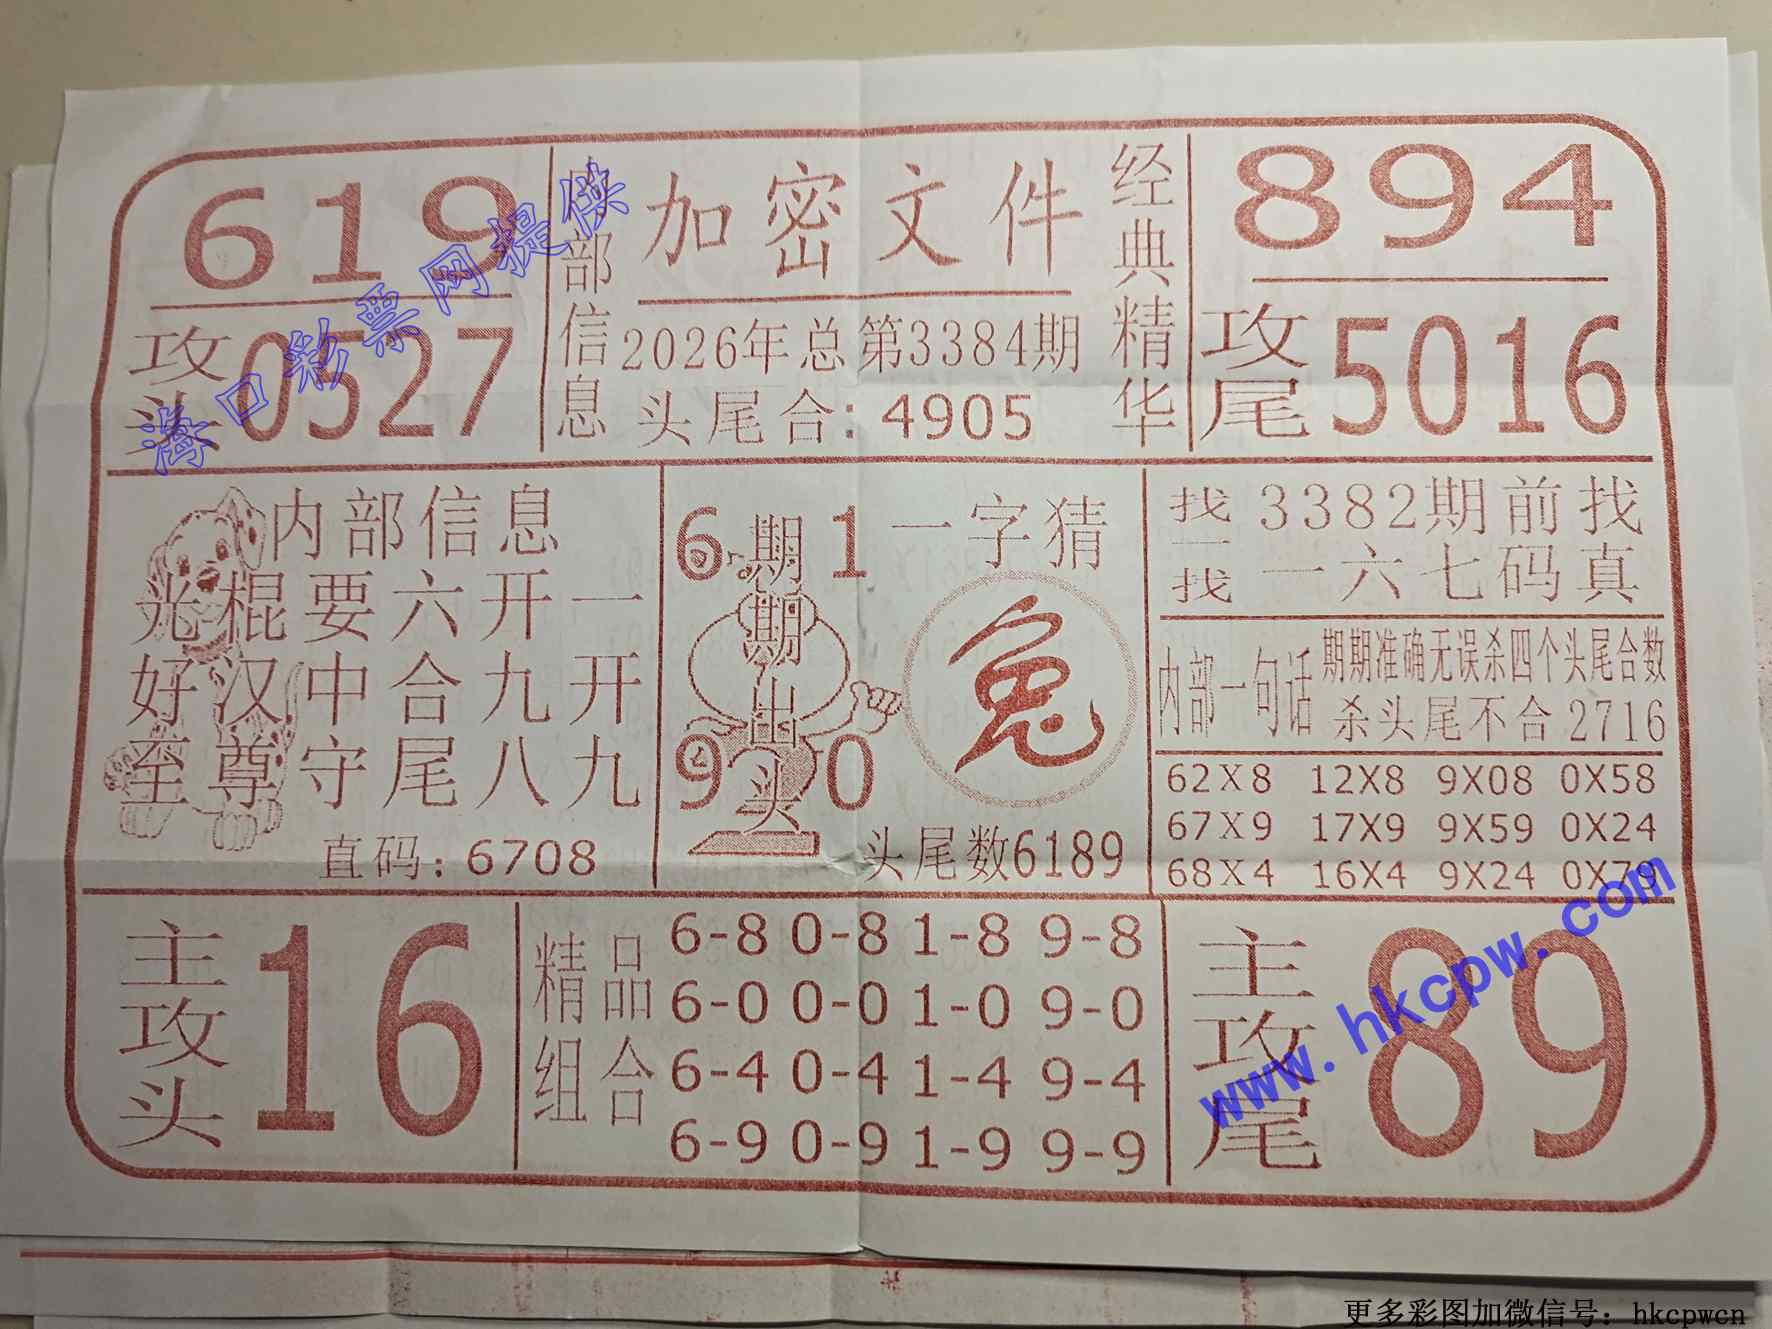 619
攻头 0527
内部信息
加密文件
2026年总第3384期
头尾合:4905
经典精华
894
攻尾 5016
海口彩票网提供
内部信息
光棍要六开一
好汉中合九开
至尊守尾八九
直码:6708
6 1
期期出头
9 0
一字猜
兔
头尾数6189
找一找
3382期前找
一六七码真
内部一句话
期期准确无误杀四个头尾合数
杀头尾不合2716
62X8 12X8 9X08 0X58
67X9 17X9 9X59 0X24
68X4 16X4 9X24 0X79
主攻头 16
精品组合
6-8 0-8 1-8 9-8
6-0 0-0 1-0 9-0
6-4 0-4 1-4 9-4
6-9 0-9 1-9 9-9
主攻尾 89
www.hkcpw.com
更多彩图加微信号：hkcpwcn